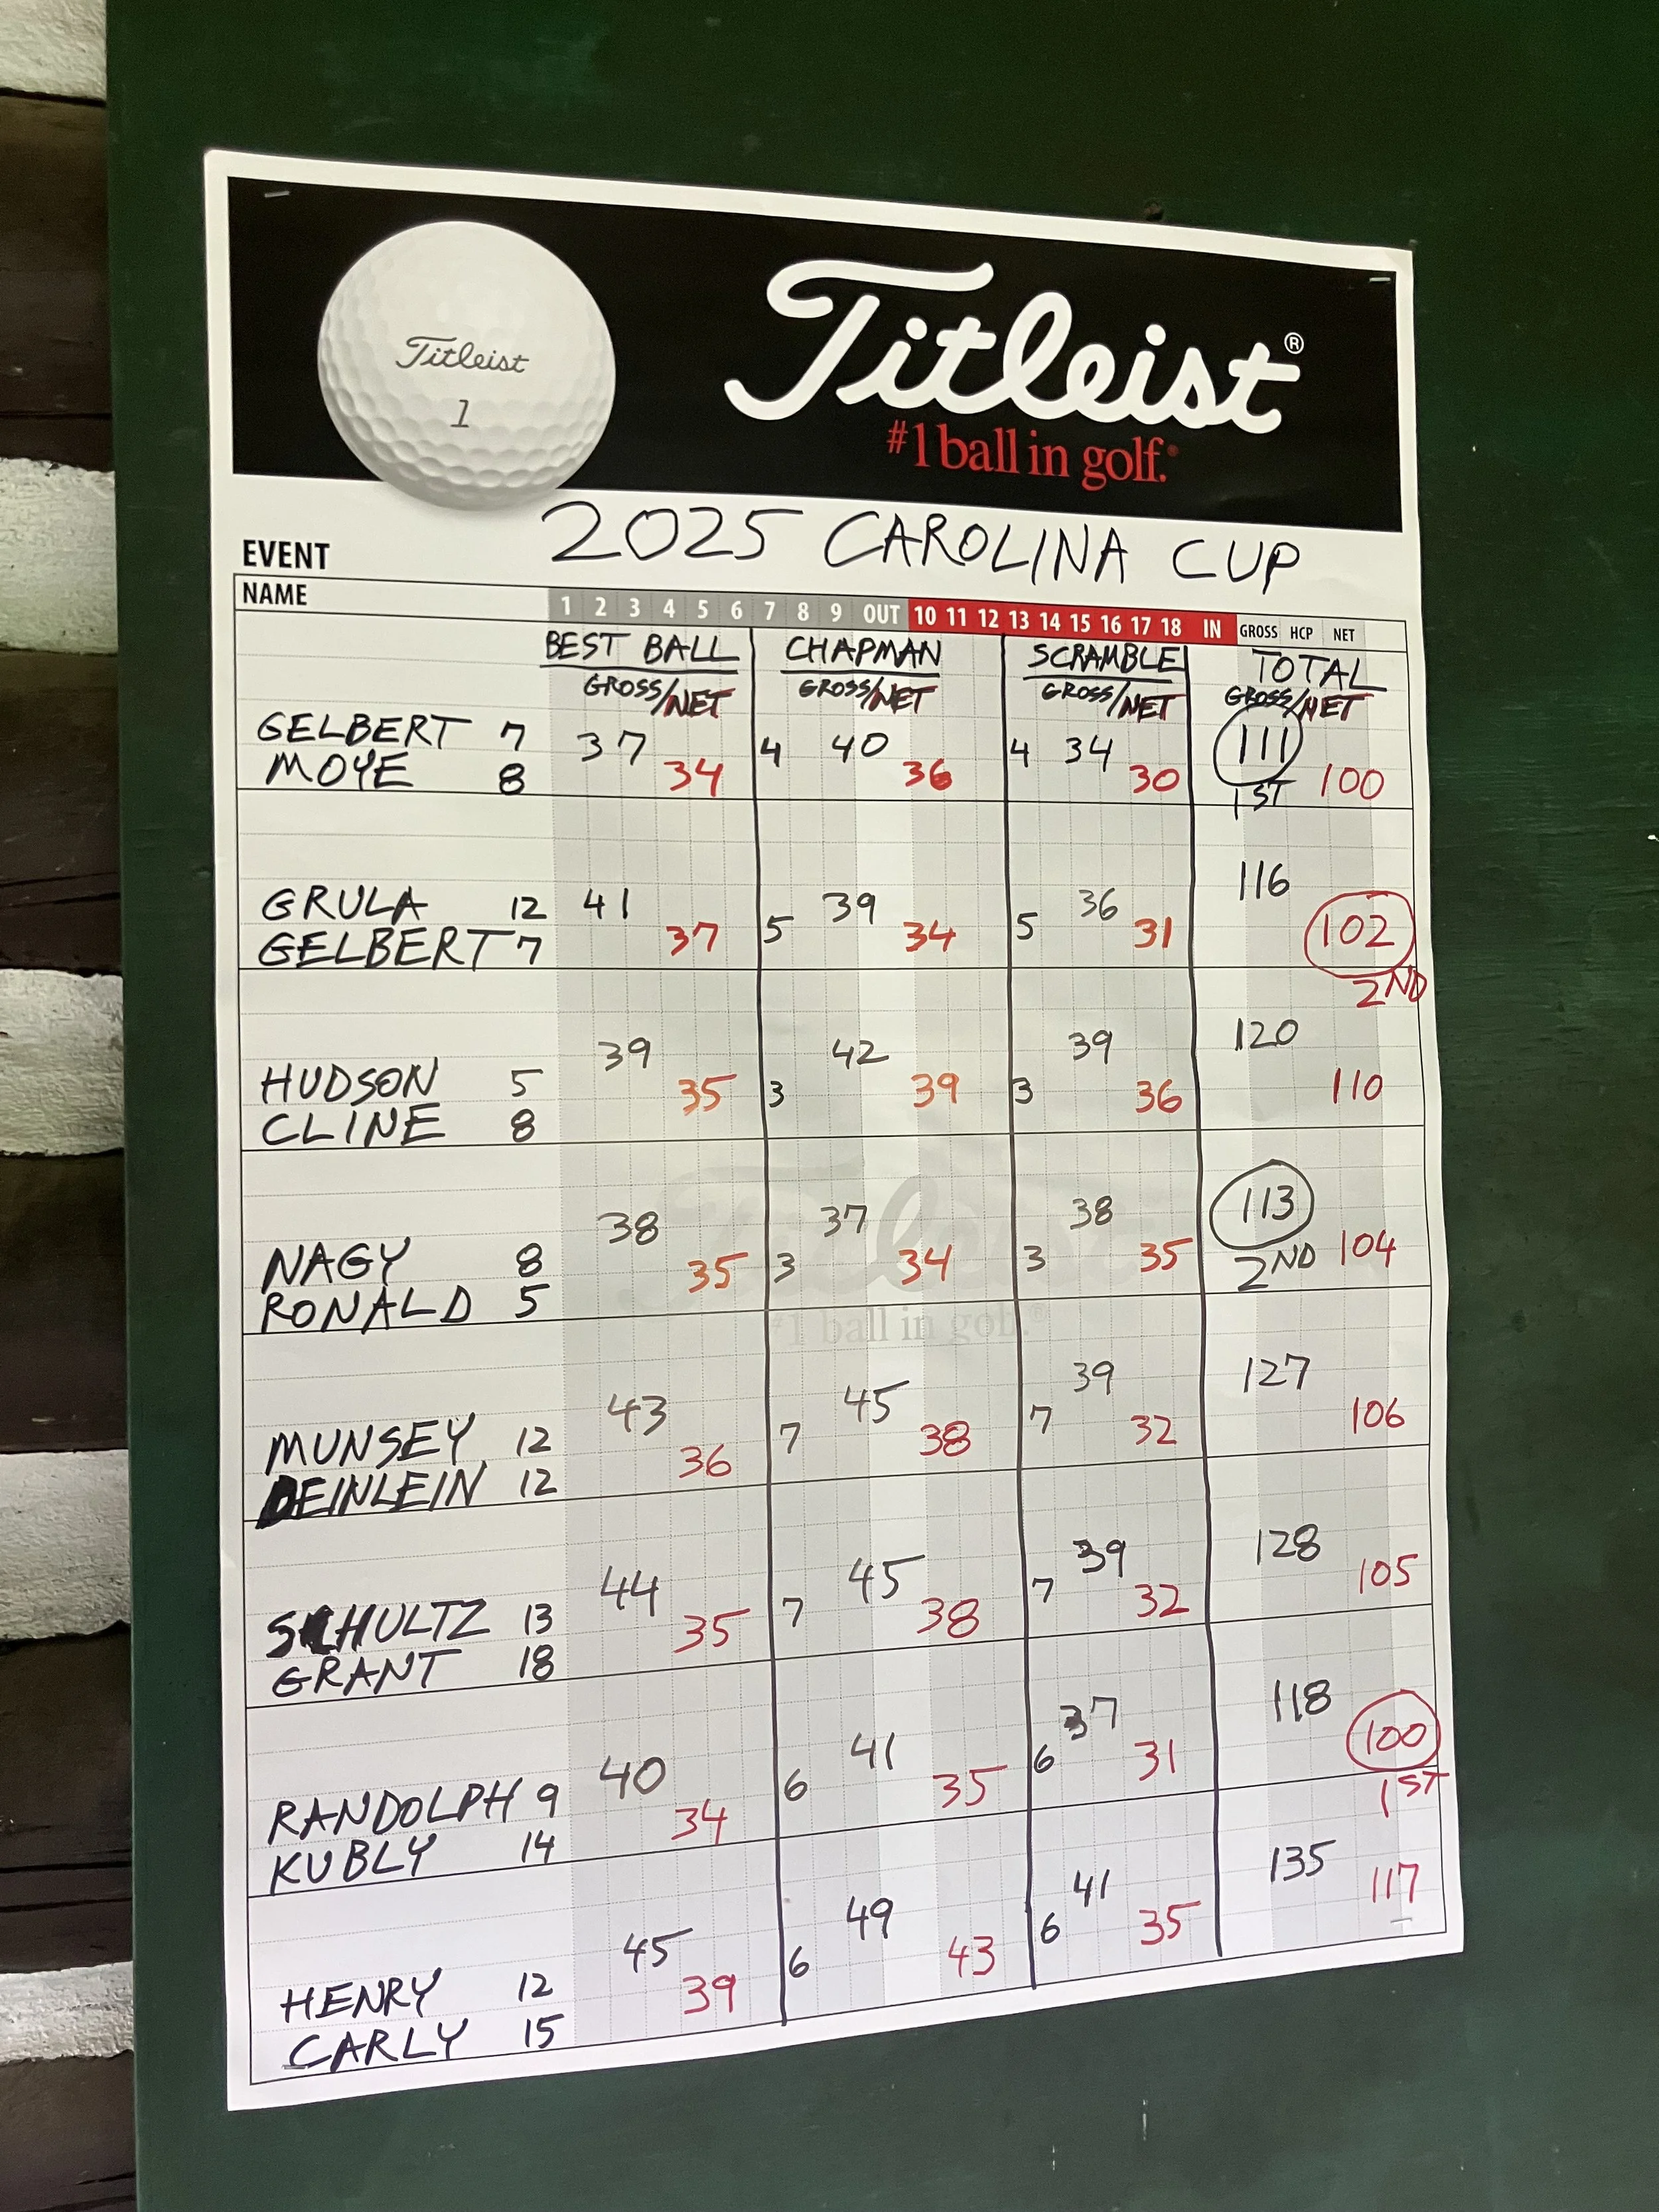 Titleist
1
Titleist®
#1 ball in golf.®
EVENT 2025 CAROLINA CUP
NAME 1 2 3 4 5 6 7 8 9 OUT 10 11 12 13 14 15 16 17 18 IN GROSS HCP NET
BEST BALL CHAPMAN SCRAMBLE TOTAL
GROSS/NET GROSS/NET GROSS/NET GROSS/NET
GELBERT 7 37 4 40 4 34 111
MOYE 8 34 36 30 1ST 100
116
GRULA 12 41 39 36
GELBERT 7 37 5 34 5 31 102
2ND
39 42 39 120
HUDSON 5 35 3 39 3 36 110
CLINE 8
38 37 38 113
NAGY 8 35 3 34 3 35 2ND 104
RONALD 5
Titleist
#1 ball in golf.®
43 45 39 127
MUNSEY 12 36 7 38 7 32 106
DEINLEIN 12
44 45 39 128
SCHULTZ 13 35 7 38 7 32 105
GRANT 18
40 41 37 118
RANDOLPH 9 34 6 35 6 31 100
KUBLY 14 1ST
45 49 41 135
HENRY 12 39 6 43 6 35 117
CARLY 15